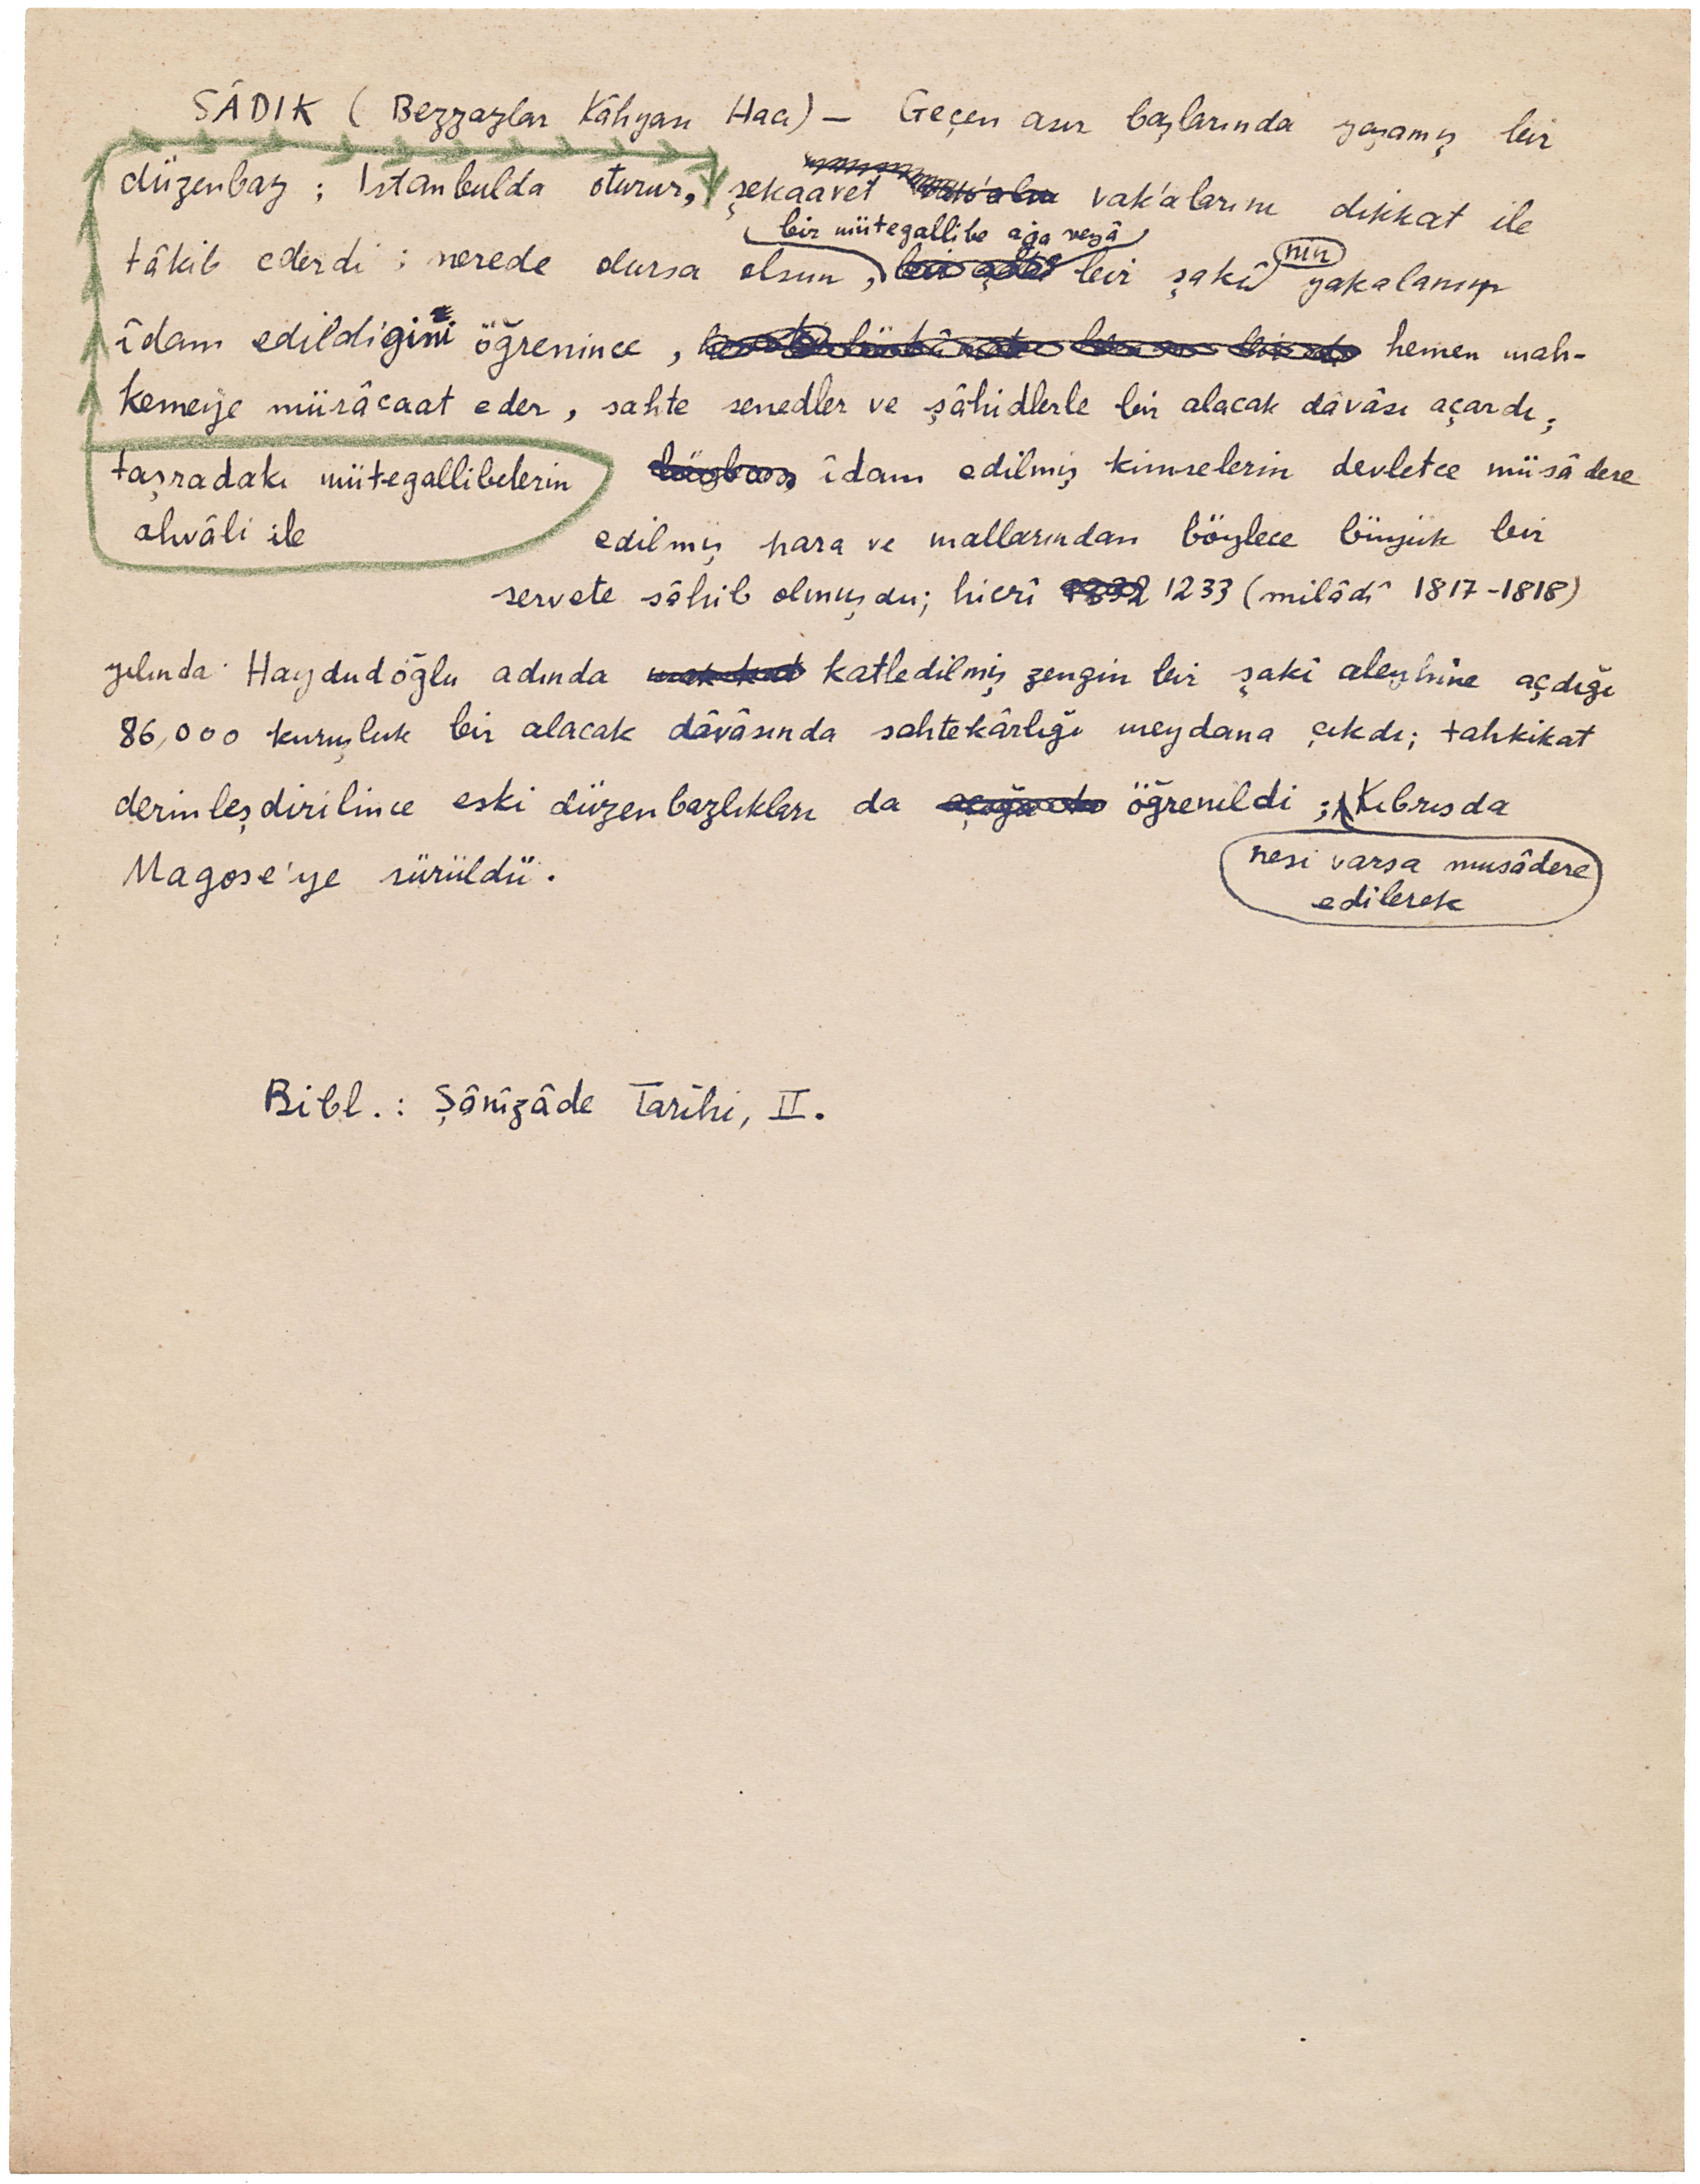 SÂDIK (Bezzazlar Kâhyası Hacı) — Geçen asır başlarında yaşamış bir
düzenbaz; İstanbulda oturur, şekaavet vak'alarını dikkat ile
bir mütegallibe ağa veyâ
tâkib ederdi; nerede olursa olsun, bir şakî nin yakalanıp
îdam edildiğini öğrenince, hemen mah-
kemeye mürâcaat eder, sahte senedler ve şâhidlerle bir alacak dâvâsı açardı;
taşradaki mütegallibelerin
ahvâli ile
îdam edilmiş kimselerin devletce müsâdere
edilmiş para ve mallarından böylece büyük bir
servete sâhib olmuşdu; hicrî 1233 (milâdî 1817-1818)
yılında Haydudoğlu adında katledilmiş zengin bir şakî aleyhine açdığı
86,000 kuruşluk bir alacak dâvâsında sahtekârlığı meydana çıkdı; tahkikat
derinleşdirilince eski düzenbazlıkları da öğrenildi; Kıbrısda
nesi varsa musâdere
edilerek
Magose'ye sürüldü.
Bibl.: Şânîzâde Tarihi, II.